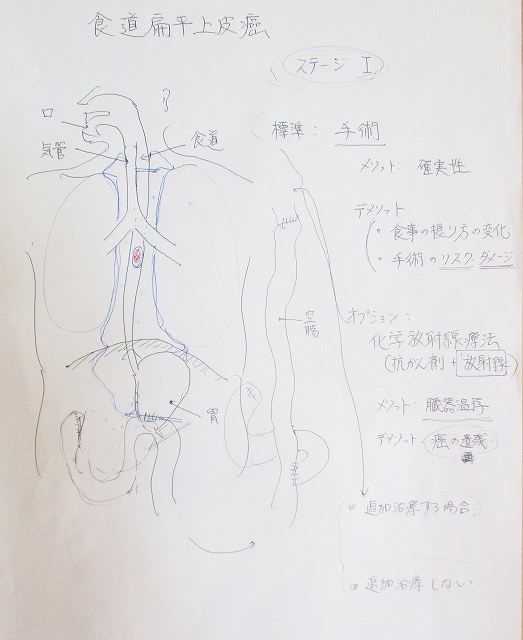 食道扁平上皮癌
ステージ I
口
気管
食道
標準： 手術
メリット： 確実性
デメリット
・食事の摂り方の変化
・手術のリスク ダメージ
空腸
オプション：
化学放射線療法
(抗がん剤 + 放射線)
胃
メリット： 臓器温存
デメリット： 癌の遺残
・追加治療する場合
・追加治療しない